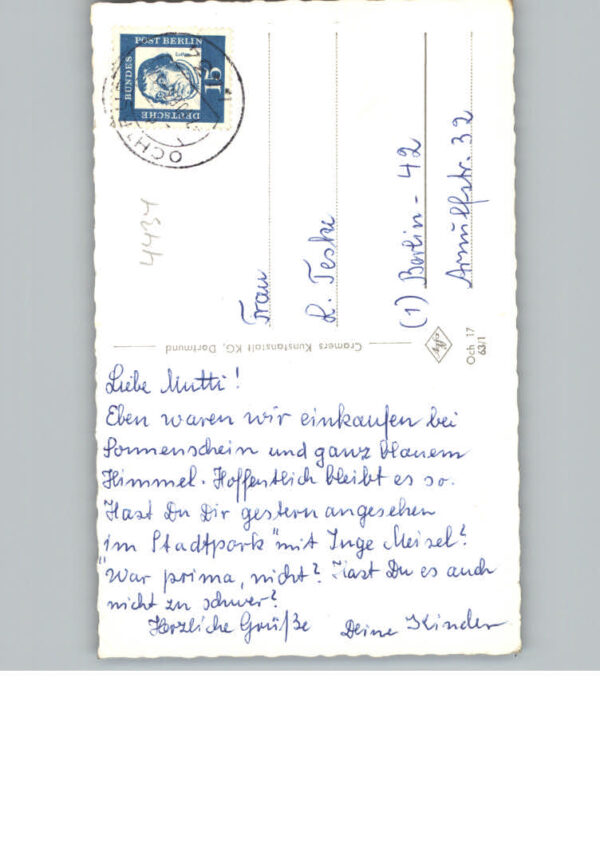 Liebe Mutti!
Eben waren wir einkaufen bei
Sonnenschein und ganz blauem
Himmel. Hoffentlich bleibt es so.
Hast Du Dir gestern angesehen
im Stadtpark" mit Inge Meisel?
"War prima, nicht? Hast Du es auch
nicht zu schwer?
Herzliche Grüße Deine Kinder
Frau
L. Teske
(1) Berlin - 42
Arnulfstr. 32
Cramers Kunstanstalt KG, Dortmund
Och 17
63/1
4434
DEUTSCHE
BUNDES
POST BERLIN
15
OCHT